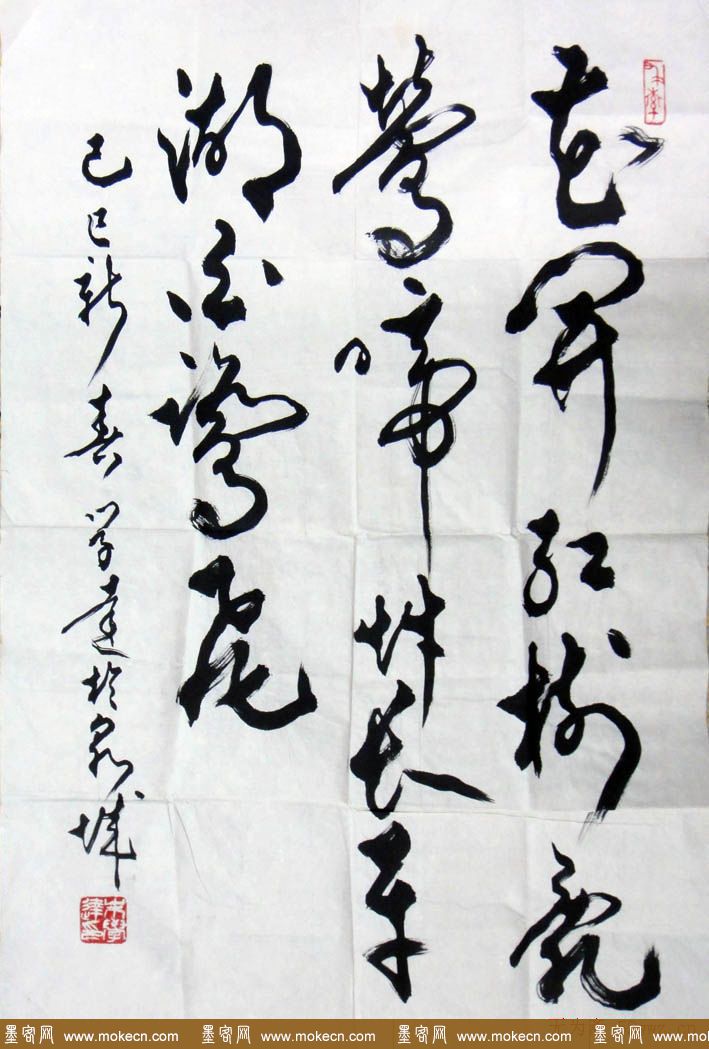 花開紅樹亂
鶯啼艸长平
湖白鷺飛
己巳新春学達於泉城
墨客网 www.mokecn.com 墨客网 www.mokecn.com 墨客网 www.mokecn.com 墨客网